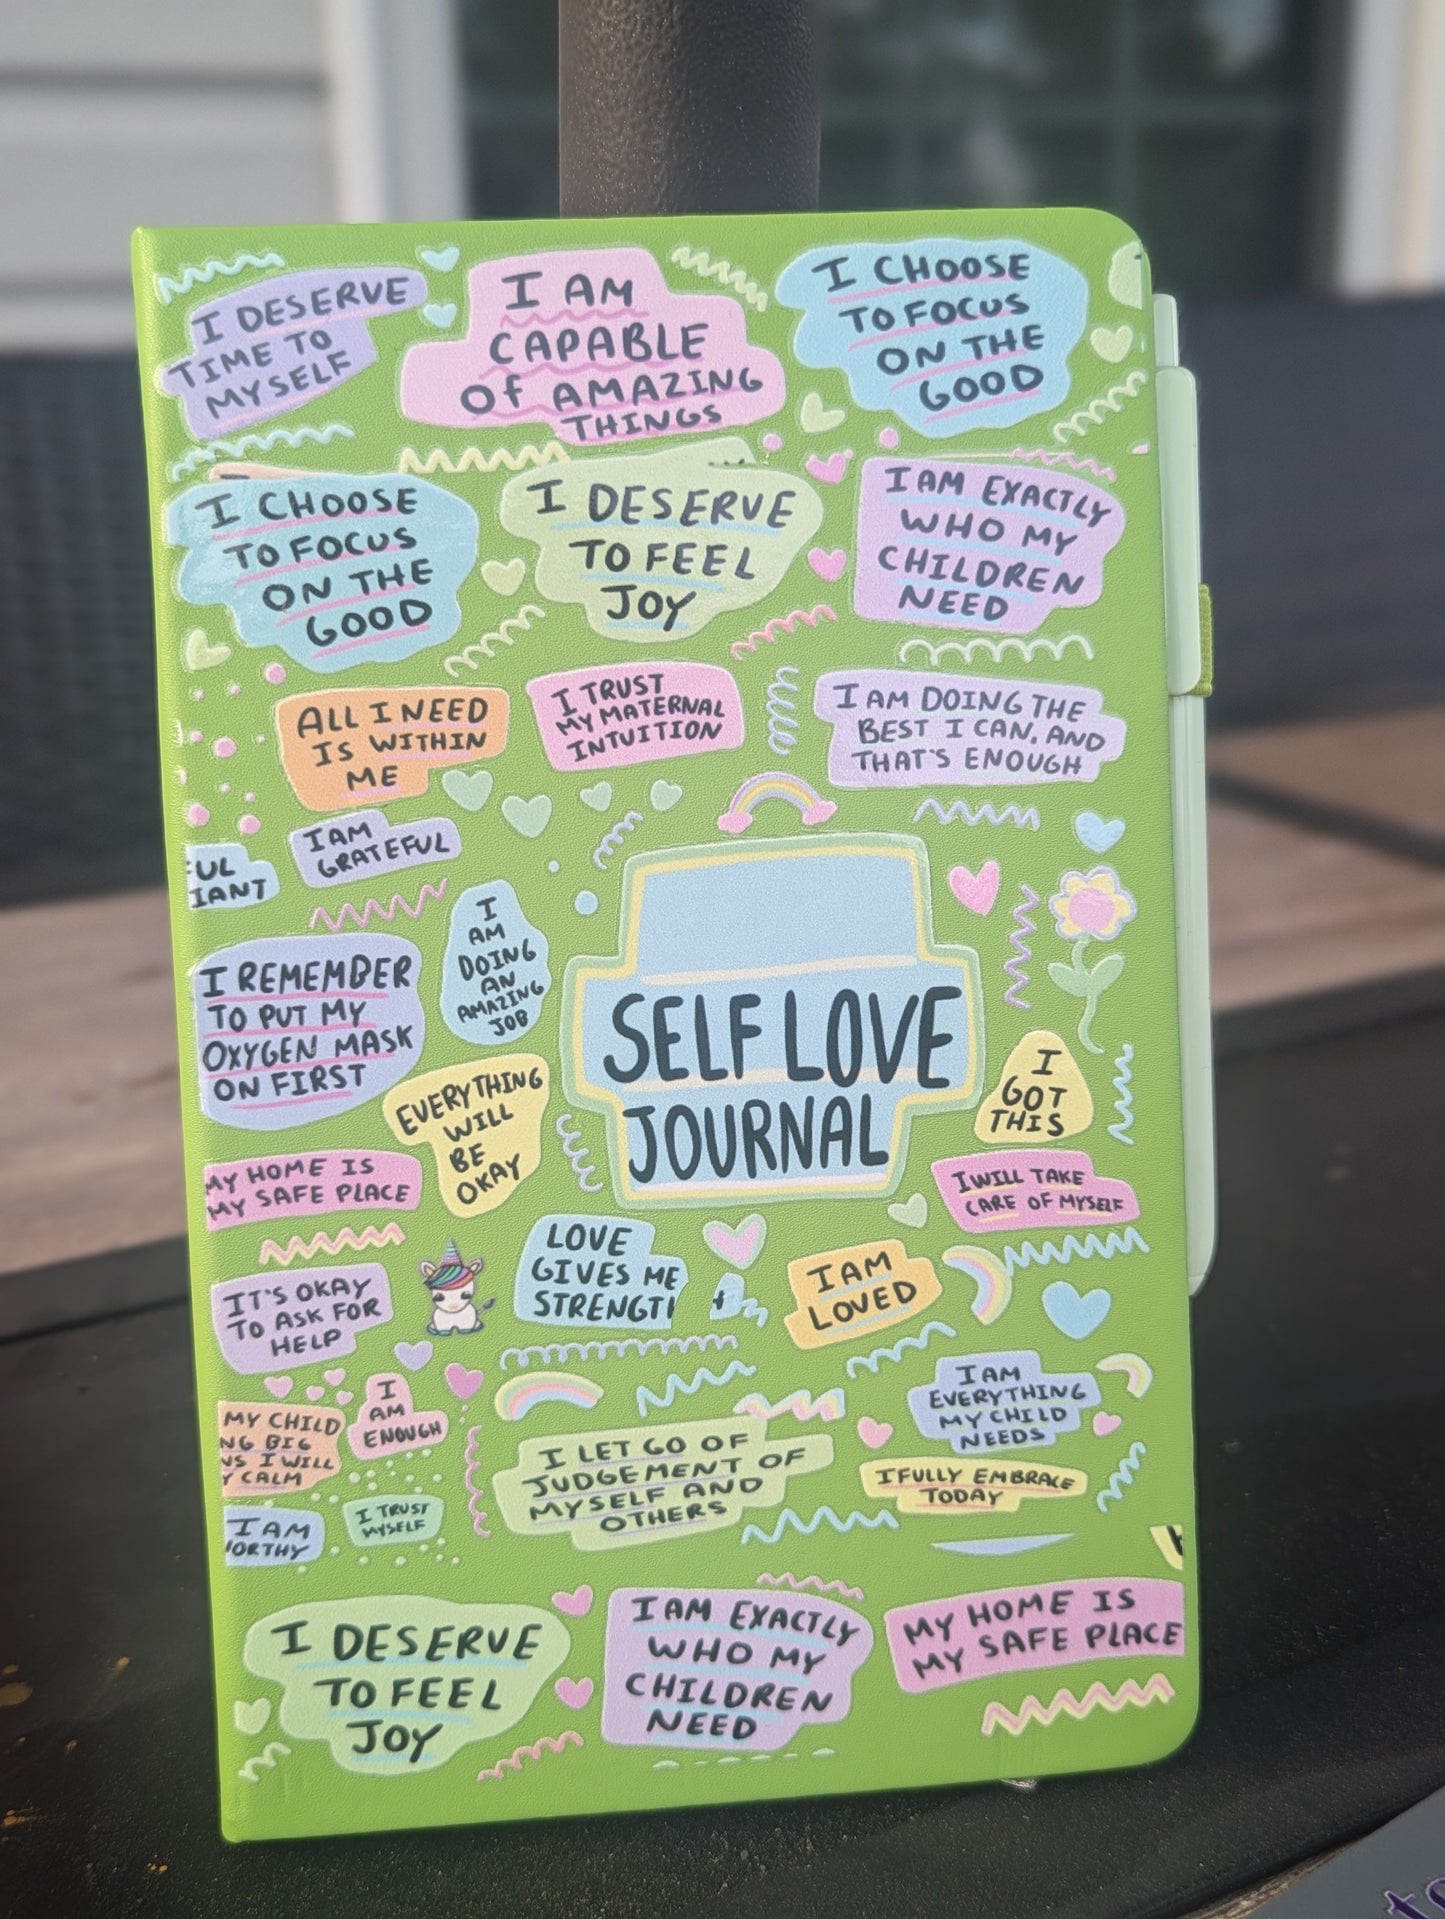 I DESERVE
TIME TO
MYSELF
I AM
CAPABLE
Of AMAZING
THINGS
I CHOOSE
TO FOCUS
ON THE
GOOD
I CHOOSE
TO FOCUS
ON THE
GOOD
I DESERVE
TO FEEL
JOY
I AM EXACTLY
WHO MY
CHILDREN
NEED
ALL I NEED
IS WITHIN
ME
I TRUST
MY MATERNAL
INTUITION
I AM DOING THE
BEST I CAN, AND
THAT'S ENOUGH
I AM
GRATEFUL
UL
IANT
I
AM
DOING
AN
AMAZING
JOB
I REMEMBER
TO PUT MY
OXYGEN MASK
ON FIRST
SELF LOVE
JOURNAL
I
GOT
THIS
EVERYTHING
WILL
BE
OKAY
MY HOME IS
MY SAFE PLACE
I WILL TAKE
CARE OF MYSELF
LOVE
GIVES ME
STRENGT
I AM
LOVED
IT'S OKAY
TO ASK FOR
HELP
I AM
EVERYTHING
MY CHILD
NEEDS
MY CHILD
NG BIG
NS I WILL
Y CALM
I
AM
ENOUGH
I LET GO OF
JUDGEMENT OF
MYSELF AND
OTHERS
I FULLY EMBRACE
TODAY
I AM
ORTHY
I TRUST
MYSELF
I DESERVE
TO FEEL
JOY
I AM EXACTLY
WHO MY
CHILDREN
NEED
MY HOME IS
MY SAFE PLACE